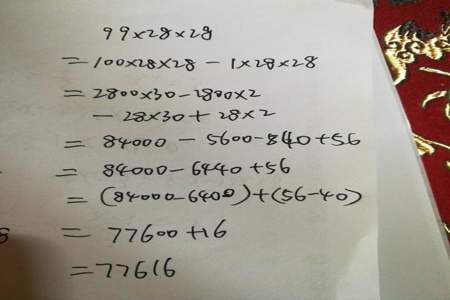 99×28×28
=100×28×28-1×28×28
=2800×30-2800×2
-28×30+28×2
=84000-5600-840+56
=84000-6440+56
=(84000-6400)+(56-40)
=77600+16
=77616
8